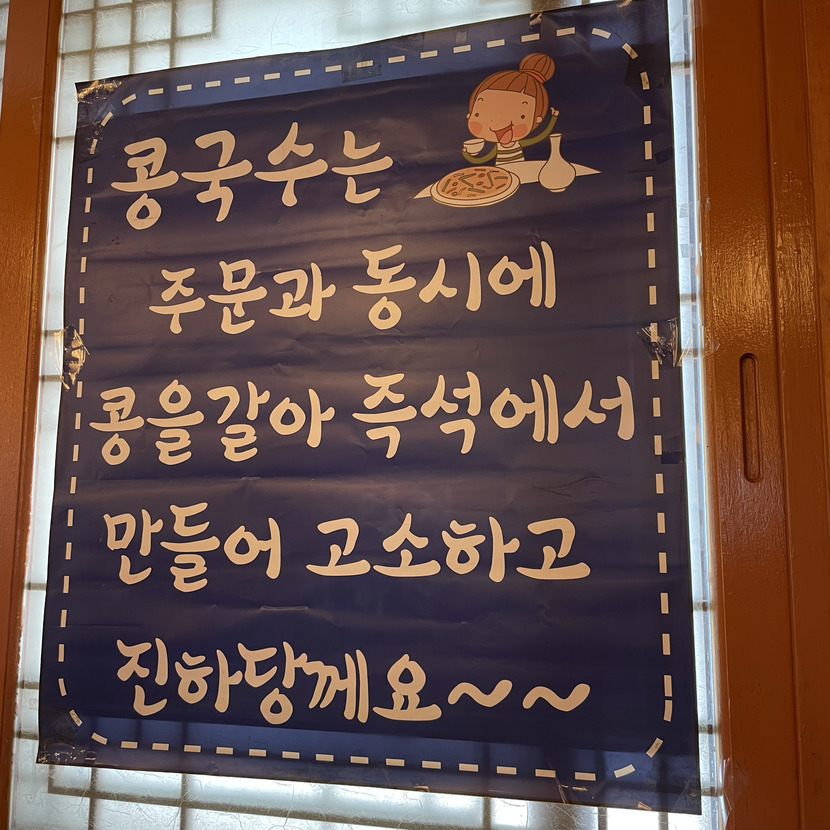 콩국수는
주문과 동시에
콩을갈아 즉석에서
만들어 고소하고
진하당께요~~